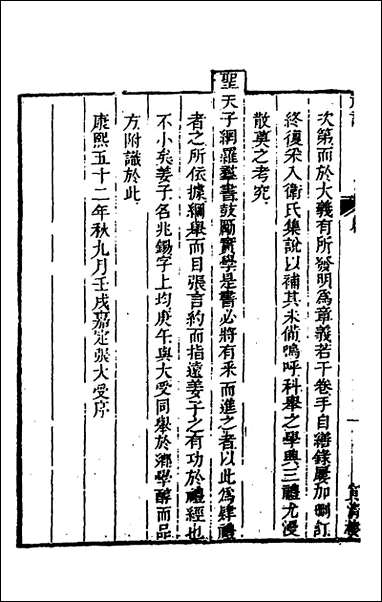 次第而於大義有所發明為章義若干卷手自繕錄屢加刪訂
終復采入衛氏集說以補其未備嗚呼科舉之學與三禮尤漫
散莫之考究
聖天子網羅羣書鼓勵實學是書必將有釆而進之者以此為肄禮
者之所依據綱舉而目張言約而指遠姜子之有功於禮經也
不小矣姜子名兆錫字上均庚午與大受同舉於鄉學醇而品
方附識於此
康熙五十二年秋九月壬戌嘉定張大受序